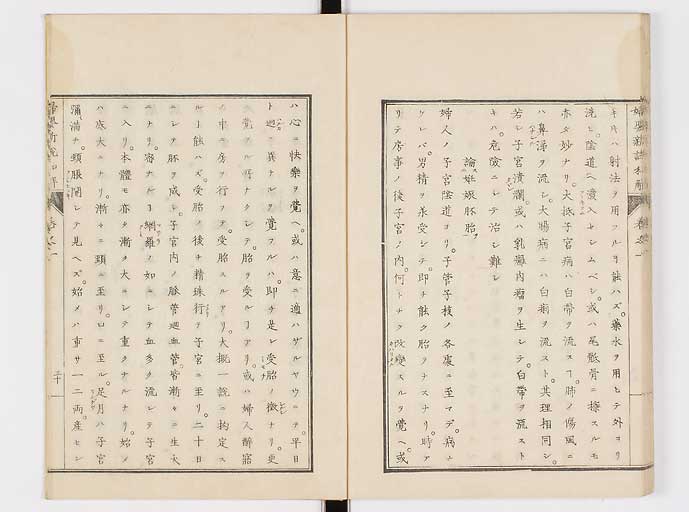 婦嬰新説和解 卷之一
キ片ハ射法ヲ用フルヿ能ハズ。藥水ヲ用ヒテ外ヨリ
洗ヒ陰道ヘ灌入セシムベシ。或ハ尾骶骨ニ擦スルモ
亦タ妙ナリ。大抵子宮病ハ白帶ヲ流スヿ。肺ノ傷風ニ
ハ鼻涕ヲ流シ。大腸病ニハ白痢ヲ流スト。其理相同シ。
若シ子宮潰爛。或ハ乳癰内瘤ヲ生シテ。白帶ヲ流スト
キハ。危險ニシテ治シ難シ
論妊娠胚胎
婦人ノ子宮陰道ヨリ。子管子核ノ各處ニ至マデ。病ナ
ケレバ。男精ヲ承受シテ。即チ能ク胎ヲナスナリ。時ア
リテ房事ノ後子宮ノ内。何トナク改變スルヲ覺ヘ。或
ハ心ニ快樂ヲ覺ヘ。或ハ意ニ適ハザルヤウニテ。平日
ト迥ニ異ナルヲ覺フルハ。即チ是レ受胎ノ徴ナリ。更
ニ覺フル所ナクシテ。胎ヲ受ルヿアリ。或ハ婦人醉寤
ノ中ニ房ヲ行フテ。受胎スルアリ。大概一説ニ拘定ス
ルヿ能ハズ。受胎ノ後チ精珠行テ子宮ニ至リ。二十日
ニシテ胚ヲ成シ。子宮内ノ脉管迴血管。皆漸々ニ生大
ニナリ。密ナルヿ網羅ノ如ニシテ血多ク流レテ子宮
ニ入リ。本體モ亦タ漸タ大ニシテ重クナルナリ。始メ
ハ底大ニナリ。漸々ニ頸ニ至リ。口ニ至ル。足月ハ子宮
彌滿チ。頸脹開シテ見ヘズ。始メハ重サ一二兩。產セン
三十